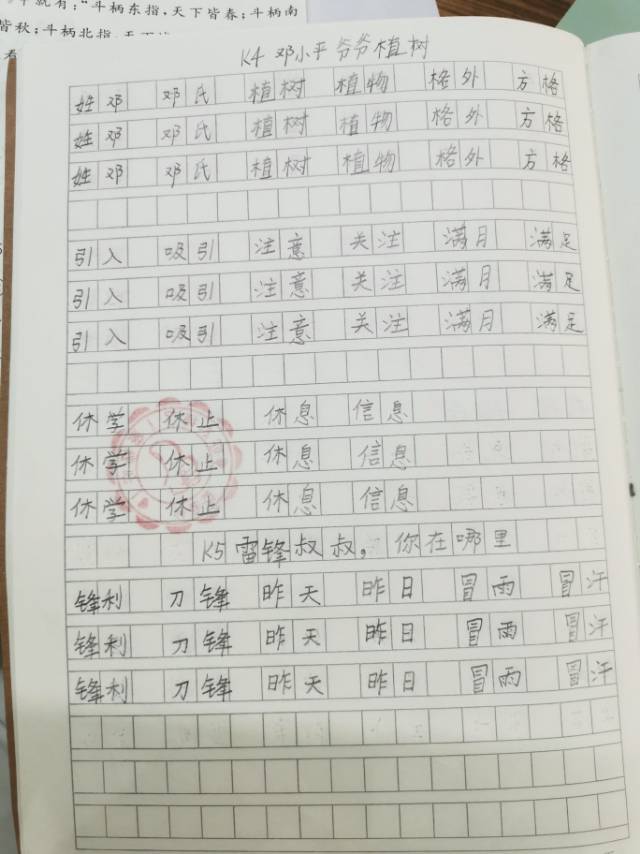 就有:“斗柄东指,天下皆春;斗柄南
皆秋;斗柄北指,天下
K4 邓小平爷爷植树
姓邓 邓氏 植树 植物 格外 方格
姓邓 邓氏 植树 植物 格外 方格
姓邓 邓氏 植树 植物 格外 方格
引入 吸引 注意 关注 满月 满足
引入 吸引 注意 关注 满月 满足
引入 吸引 注意 关注 满月 满足
休学 休止 休息 信息
休学 休止 休息 信息
休学 休止 休息 信息
K5 雷锋叔叔,你在哪里
锋利 刀锋 昨天 昨日 冒雨 冒汗
锋利 刀锋 昨天 昨日 冒雨 冒汗
锋利 刀锋 昨天 昨日 冒雨 冒汗